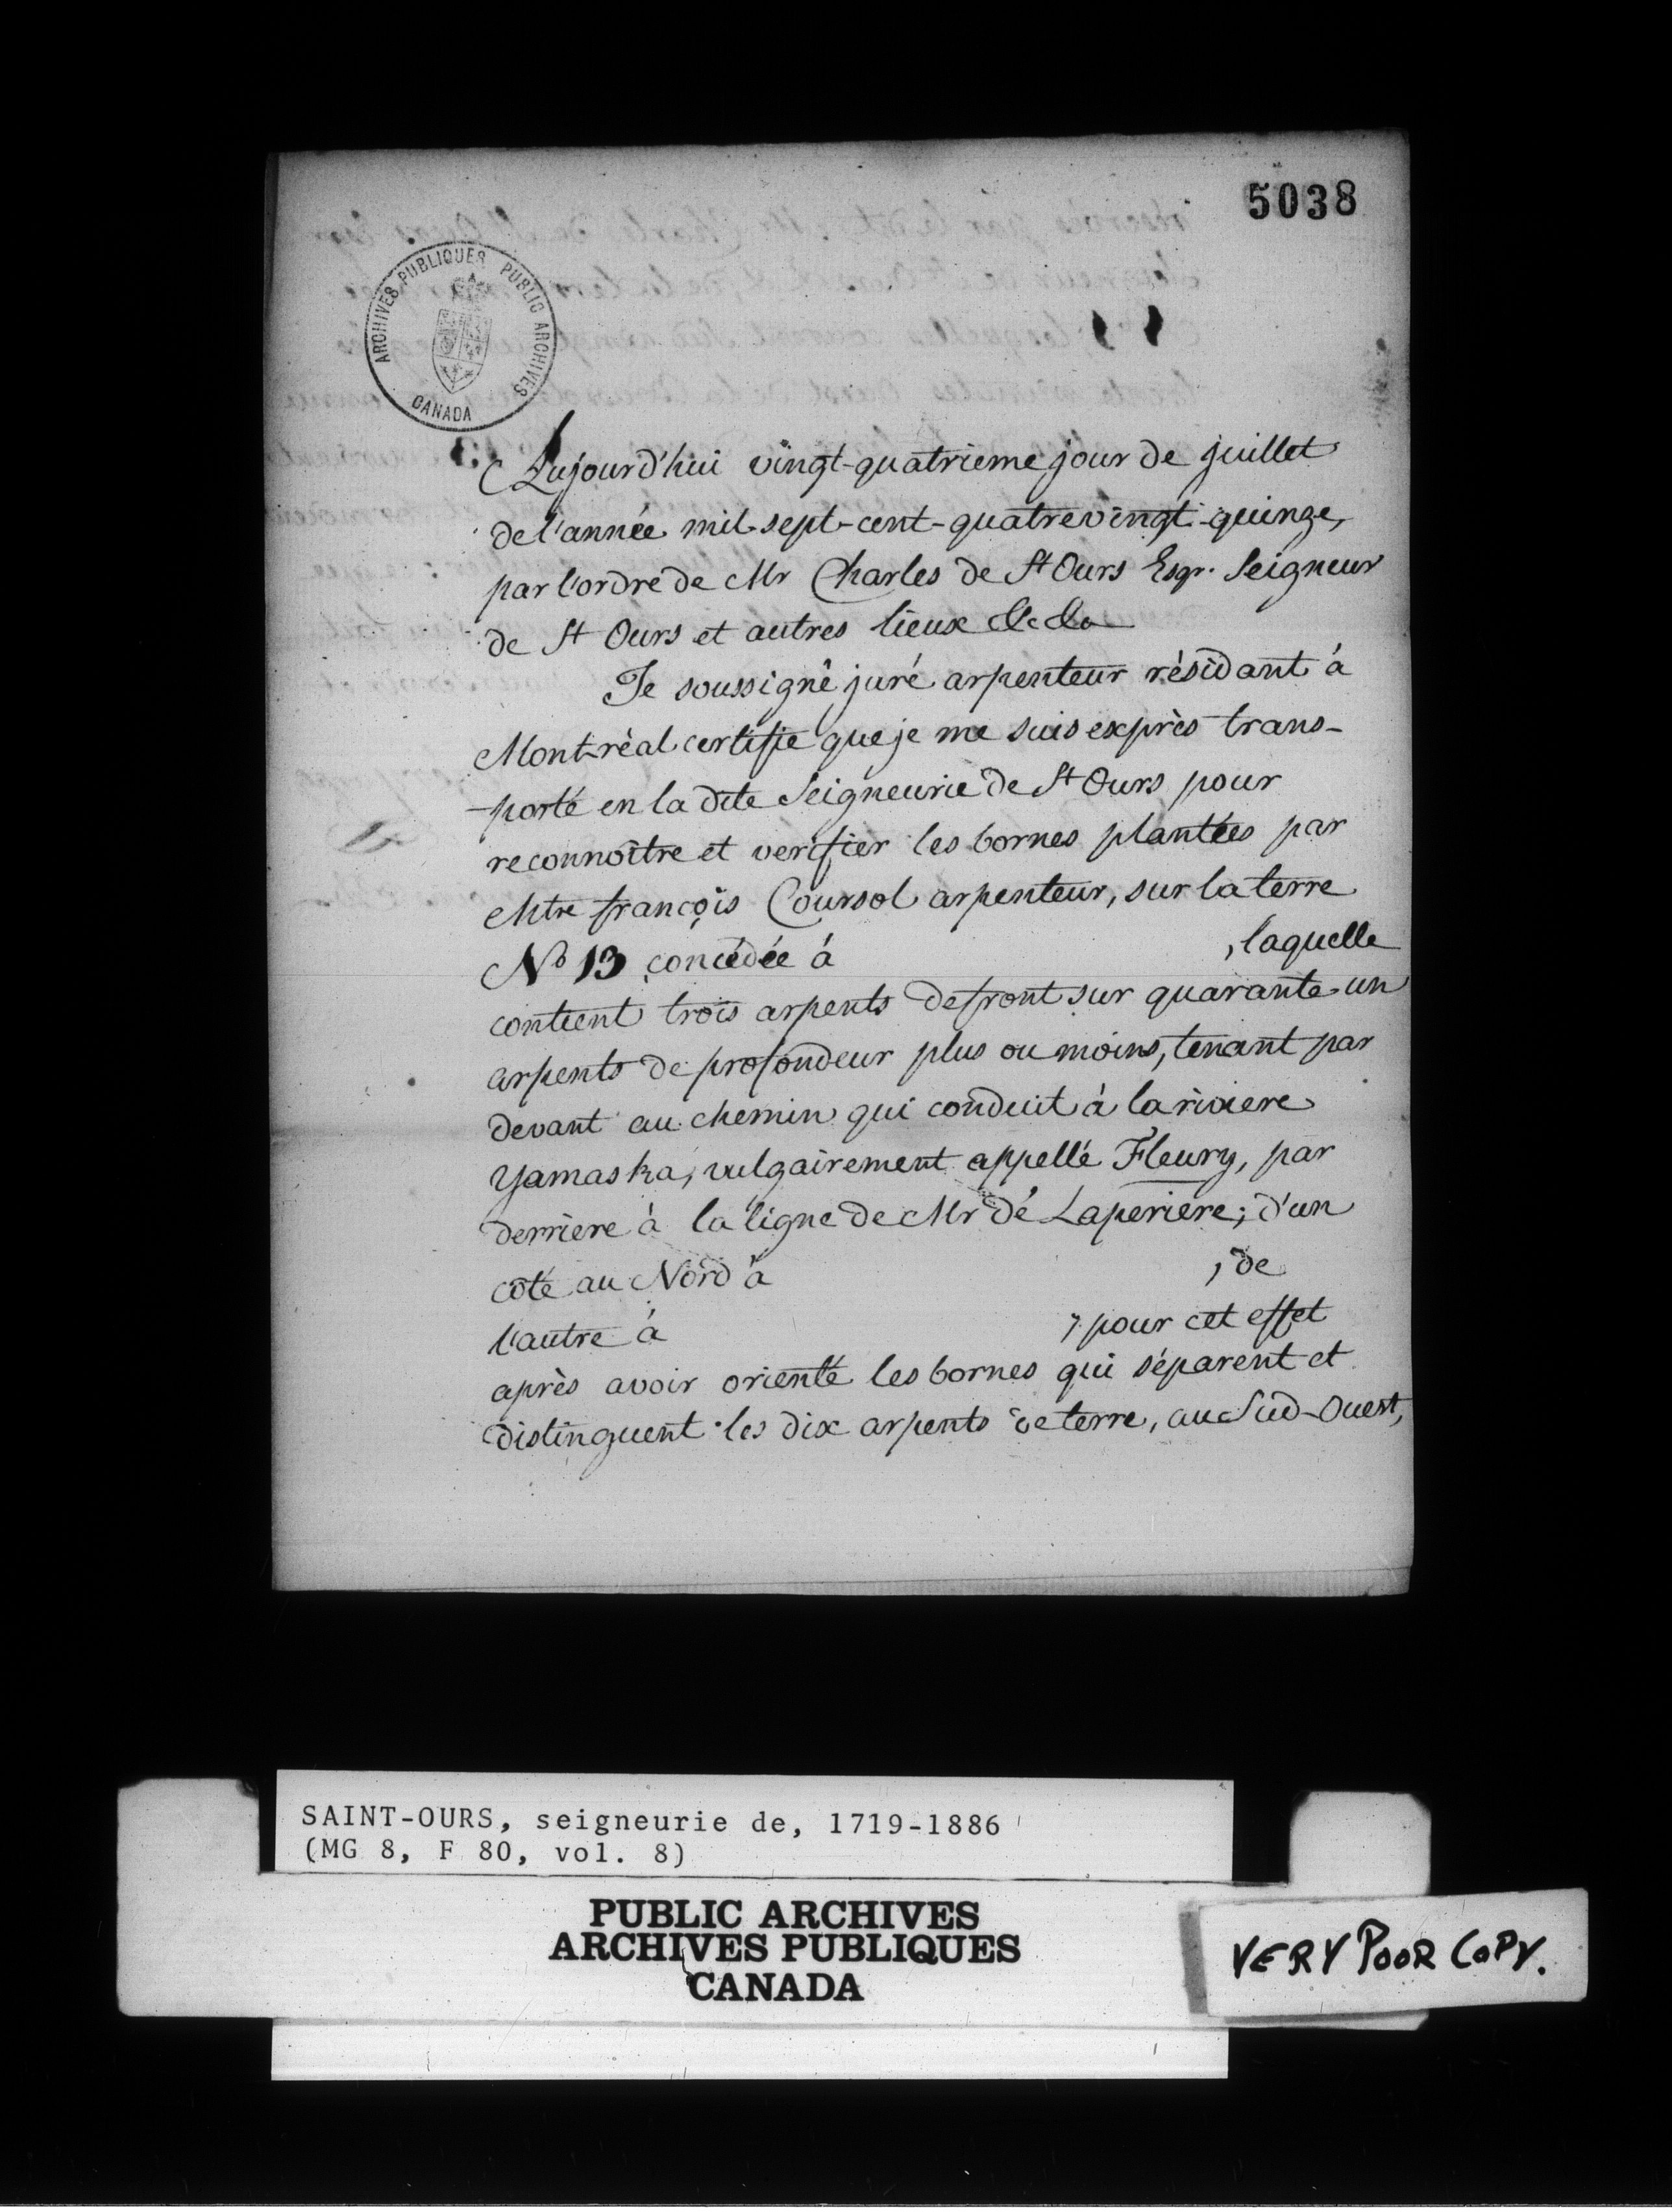 5038
ARCHIVES PUBLIQUES PUBLIC ARCHIVES
CANADA
Aujourd'hui vingt-quatrieme jour de juillet
de l'année mil-sept-cent-quatrevingt-quinze,
par l'ordre de Mr Charles de St Ours Esqr. Seigneur
de St Ours et autres lieux &c &a
Je soussigné juré arpenteur résidant à
Montréal certifie que je me suis exprès trans-
-porté en la dite Seigneurie de St Ours pour
reconnoître et verifier les bornes plantées par
Mtre françois Coursol arpenteur, sur la terre
No 13 concédée à , laquelle
contient trois arpents de front sur quarante-un
arpents de profondeur plus ou moins, tenant par
devant au chemin qui conduit à la riviere
Yamaska, vulgairement appellé Fleury, par
derriere à la ligne de Mr de Laperiere; d'un
côté au Nord à , de
l'autre à , pour cet effet
après avoir orienté les bornes qui séparent et
distinguent les dix arpents de terre, au Sud-Ouest,
SAINT-OURS, seigneurie de, 1719-1886
(MG 8, F 80, vol. 8)
PUBLIC ARCHIVES
ARCHIVES PUBLIQUES
CANADA
VERY POOR COPY.